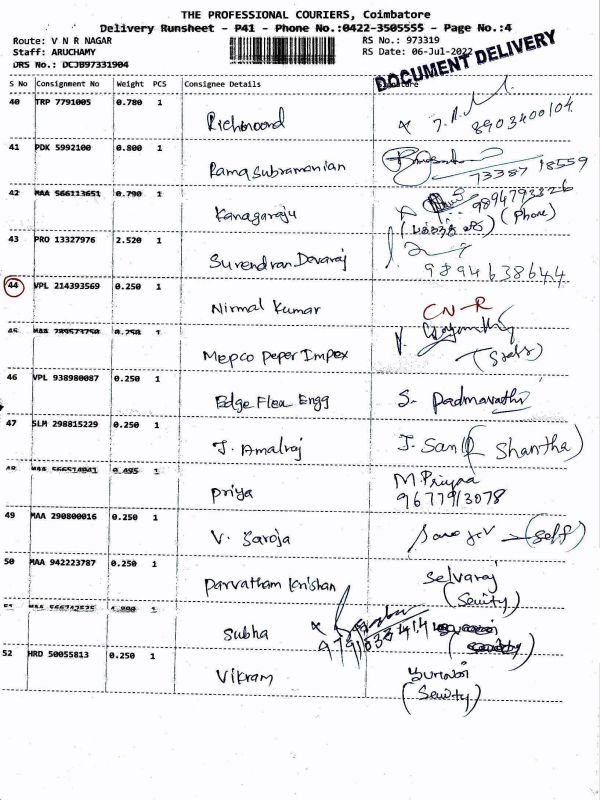 THE PROFESSIONAL COURIERS, Coimbatore
Delivery Runsheet - P41 - Phone No.:0422-3505555 - Page No.:4
Route: V N R NAGAR RS No.: 973319
Staff: ARUCHAMY RS Date: 06-Jul-2022
DRS No.: DCJB97331904 DOCUMENT DELIVERY
S No Consignment No Weight PCS Consignee Details
40 TRP 7791005 0.780 1
Richmoord 8903400104
41 PDK 5992100 0.800 1
Ramasubramanian 73387 18559
42 MAA 566113651 0.790 1
Kanagaraju 9894793326 (Phone)
43 PRO 13327976 2.520 1
Surendran Devaraj 9894638644
44 VPL 214393569 0.250 1
Nirmal Kumar CN-R
45 MAA 789573750 0.250 1
Mepco Peper Impex
46 VPL 938980087 0.250 1
Edge Flex Engg S. Padmavathi
47 SLM 298815229 0.250 1
J. Amalraj (Shantha)
48 0.495 1
Priya M. Priyaa
9677913078
49 MAA 290800016 0.250 1
V. Saroja (Self)
50 MAA 942223787 0.250 1
Parvatham Krishan Selvaraj
(Seuity)
51
Subha
52 HRD 50055813 0.250 1
Vikram (Seuity)